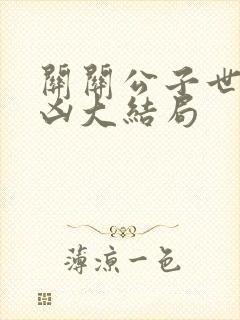 關關公子世
凶大結局
薄涼一色